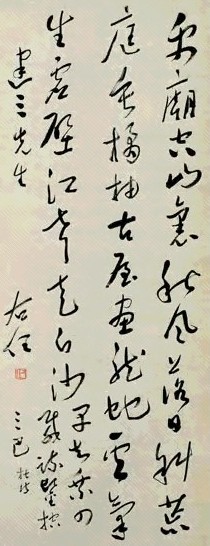 禹廟空山裏秋風落日斜荒
庭垂橘柚古屋畫龍蛇雲氣
生虛壁江聲走白沙早知乘四
載疏鑿控
三巴 杜詩
三先生
右任